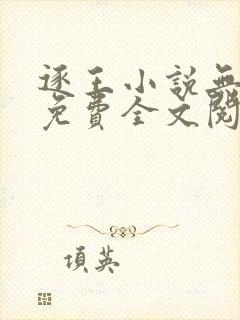 逐王小說無
免費全文閱
項英